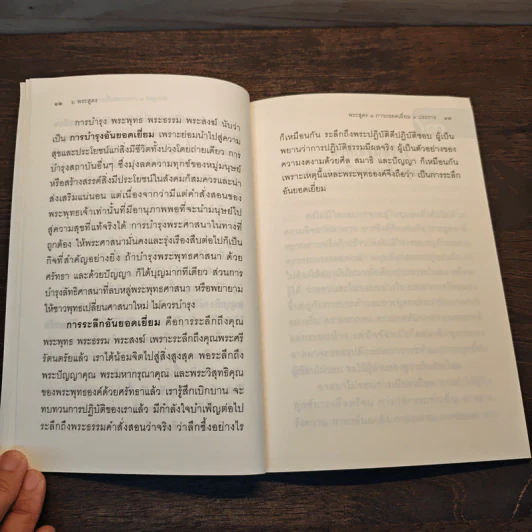 ๑๒ ๖ พระสูตร
การบำรุง พระพุทธ พระธรรม พระสงฆ์ นับว่า
เป็น การบำรุงอันยอดเยี่ยม เพราะย่อมนำไปสู่ความ
สุขและประโยชน์แก่สิ่งมีชีวิตทั้งปวงโดยถ่ายเดียว การ
บำรุงสถาบันอื่นๆ ซึ่งมุ่งลดความทุกข์ของหมู่มนุษย์
หรือสร้างสรรค์สิ่งมีประโยชน์ในสังคมก็สมควรและน่า
ส่งเสริมแน่นอน แต่เนื่องจากว่ามีแต่คำสั่งสอนของ
พระพุทธเจ้าเท่านั้นที่มีอานุภาพพอที่จะนำมนุษย์ไป
สู่ความสุขที่แท้จริงได้ การบำรุงพระศาสนาในทางที่
ถูกต้อง ให้พระศาสนามั่นคงและรุ่งเรืองสืบต่อไปก็เป็น
กิจที่สำคัญอย่างยิ่ง ถ้าบำรุงพระพุทธศาสนา ด้วย
ศรัทธา และด้วยปัญญา ก็ได้บุญมากทีเดียว ส่วนการ
บำรุงลัทธิศาสนาที่ลบหลู่พระพุทธศาสนา หรือพยายาม
ให้ชาวพุทธเปลี่ยนศาสนาใหม่ ไม่ควรบำรุง
การระลึกอันยอดเยี่ยม คือการระลึกถึงคุณ
พระพุทธ พระธรรม พระสงฆ์ เพราะระลึกถึงคุณพระศรี
รัตนตรัยแล้ว เราได้น้อมจิตไปสู่สิ่งสูงสุด พอระลึกถึง
พระปัญญาคุณ พระมหากรุณาคุณ และพระวิสุทธิคุณ
ของพระพุทธองค์ด้วยศรัทธาแล้ว เรารู้สึกเบิกบาน จะ
ทบทวนการปฏิบัติของเราแล้ว มีกำลังใจบำเพ็ญต่อไป
ระลึกถึงพระธรรมคำสั่งสอนว่าจริง ว่าลึกซึ้งอย่างไร
พระสูตร ๑ การยอดเยี่ยม ๖ ประการ ๑๓
ก็เหมือนกัน ระลึกถึงพระปฏิบัติดีปฏิบัติชอบ ผู้เป็น
พยานว่าการปฏิบัติธรรมมีผลจริง ผู้เป็นตัวอย่างของ
ความงดงามด้วยศีล สมาธิ และปัญญา ก็เหมือนกัน
เพราะเหตุนี้แหละพระพุทธองค์จึงถือว่า เป็นการระลึก
อันยอดเยี่ยม